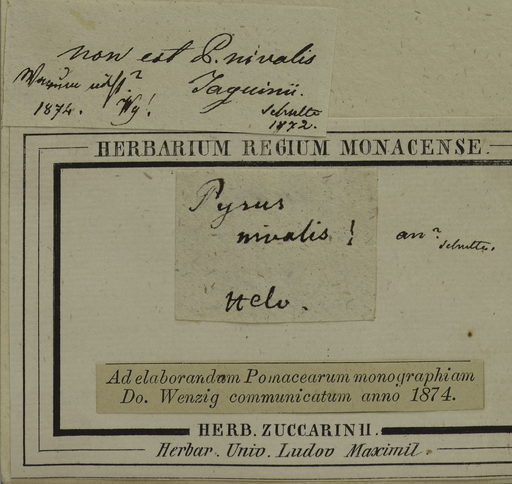 non est P. nivalis
Jaquinii.
Schultz
1872.
Warum nicht?
1874. Wg!
HERBARIUM REGIUM MONACENSE.
Pyrus
nivalis !
an?
Schultz.
Helv.
Ad elaborandam Pomacearum monographiam
Do. Wenzig communicatum anno 1874.
HERB. ZUCCARINII.
Herbar. Univ. Ludov Maximil.